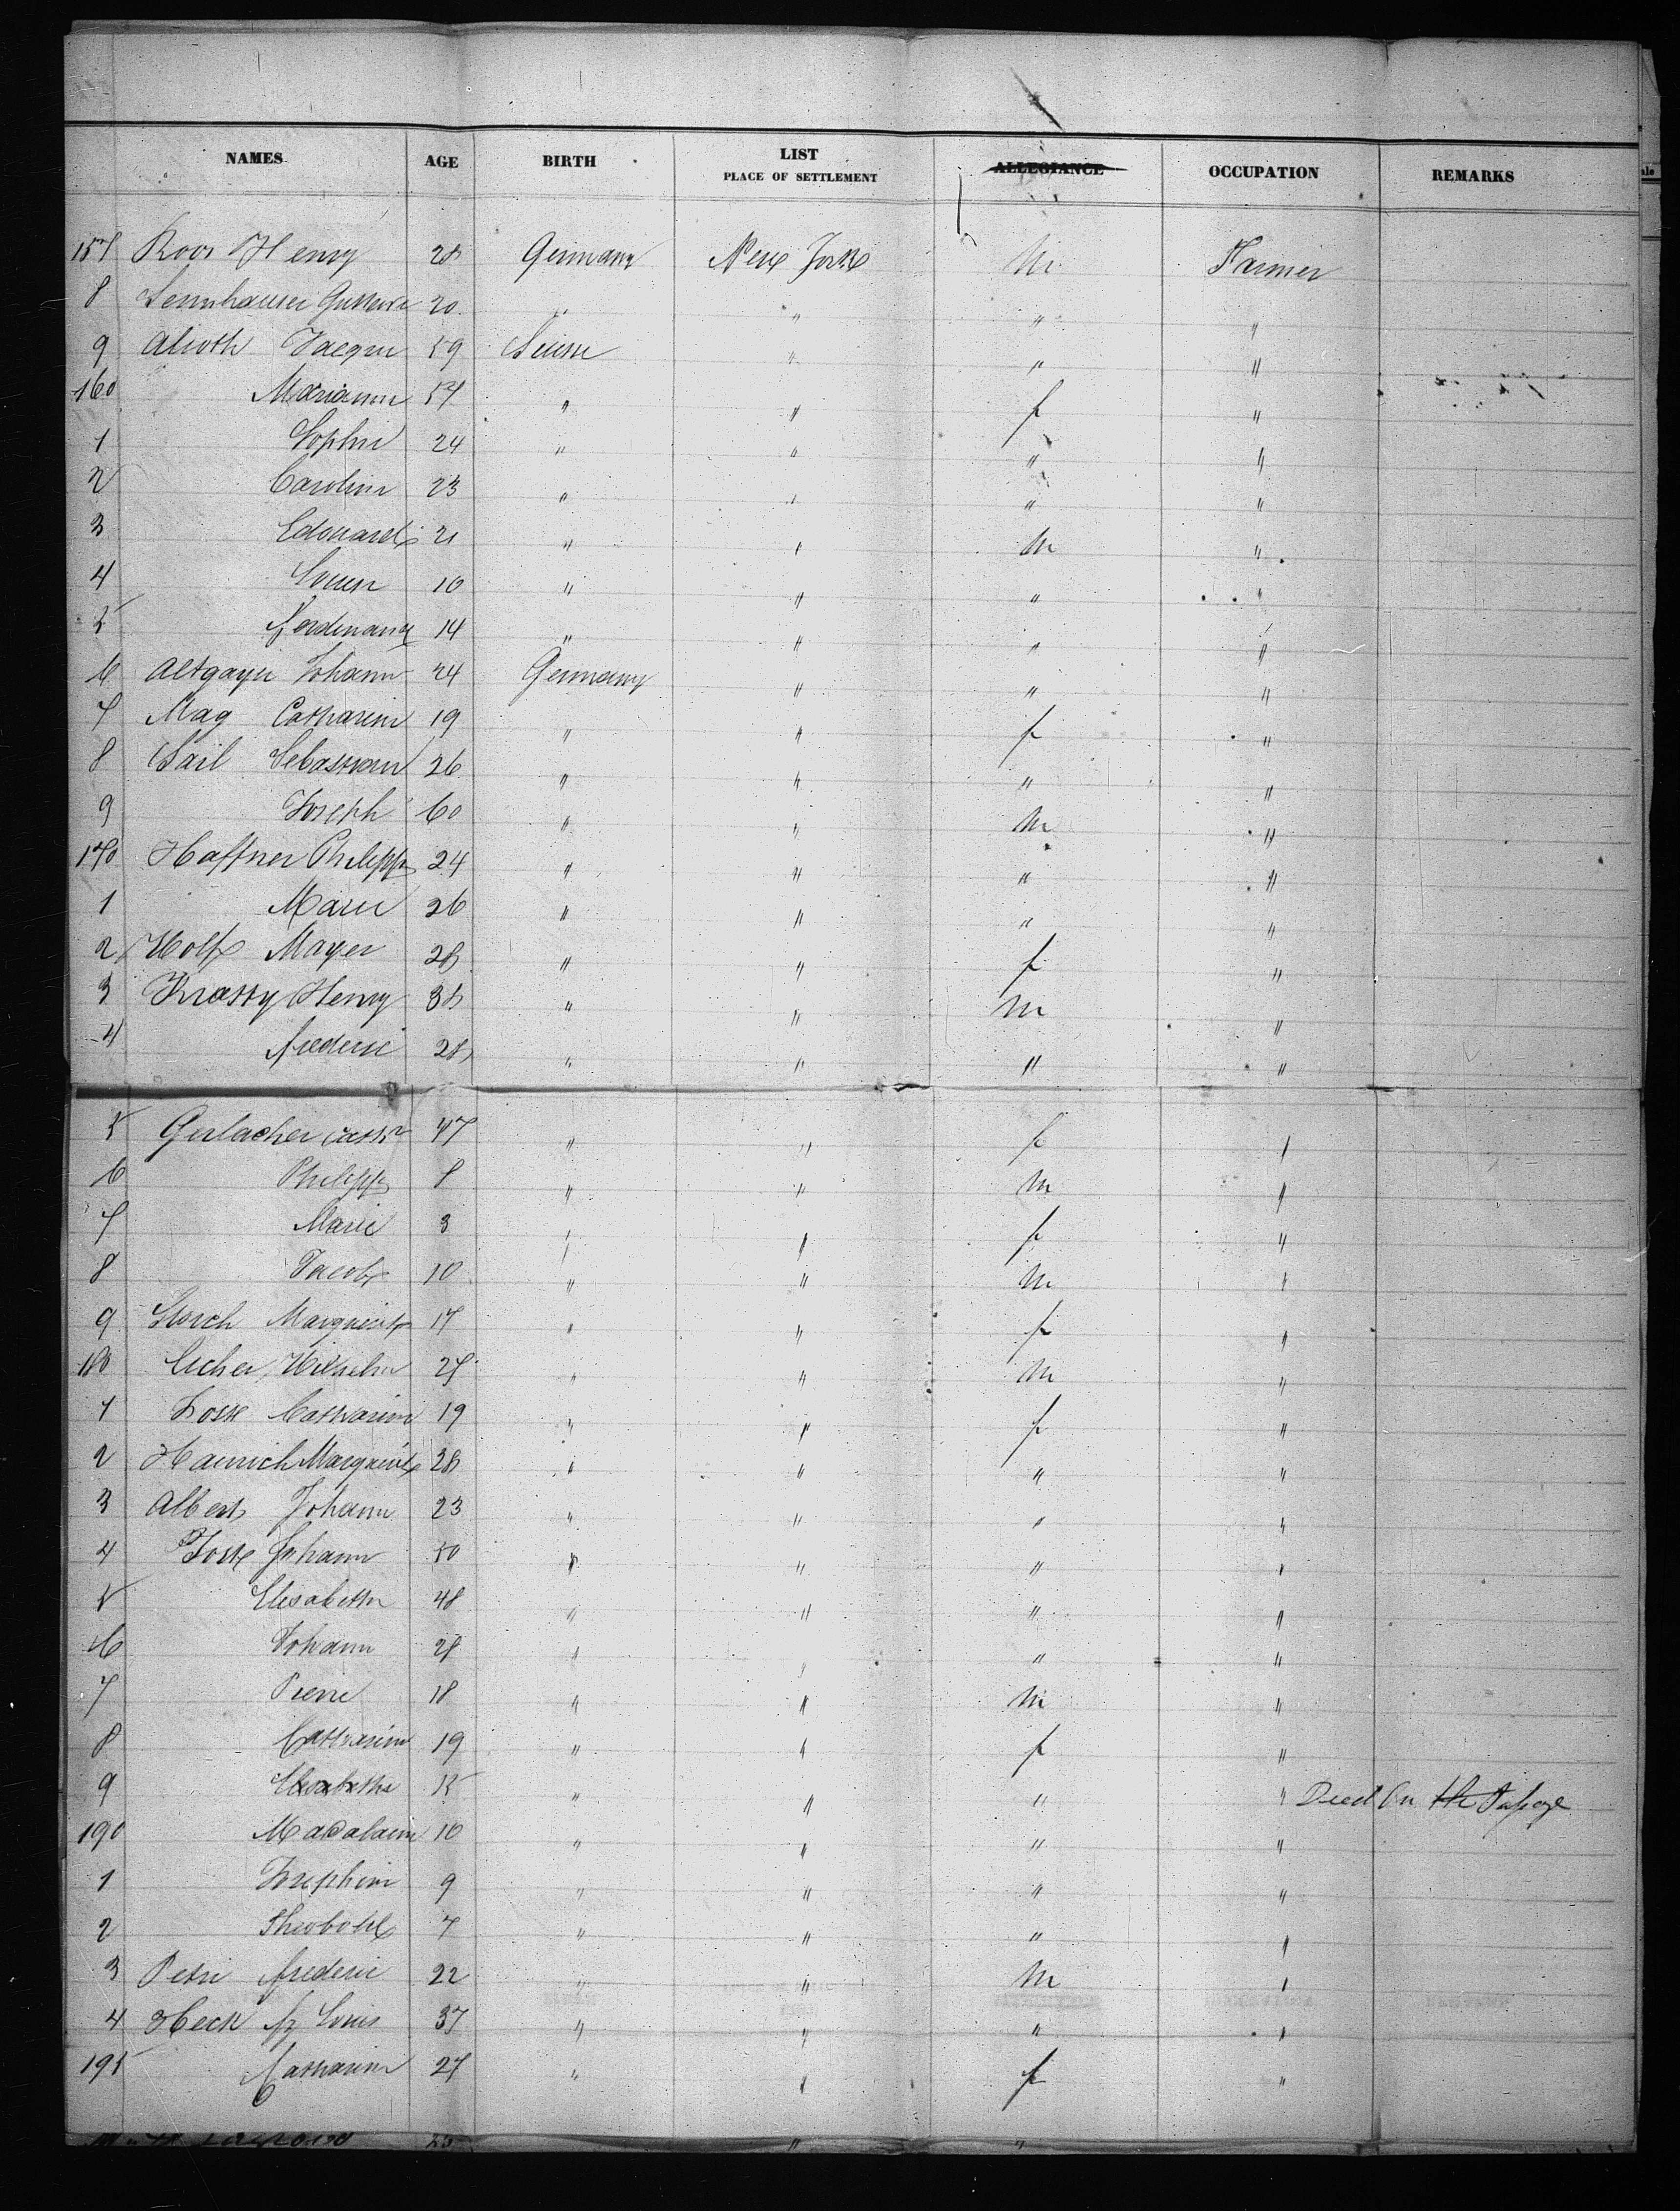 NAMES AGE BIRTH LIST PLACE OF SETTLEMENT ALLEGIANCE OCCUPATION REMARKS
157 Roos Henry 28 Germany New York M Farmer
8 Sennhauser Gustave 20 " " " "
9 Alioth Jacque 59 Suisse " " "
160 Mariann 57 " " f "
1 Sophie 24 " " " "
2 Carolin 23 " " " "
3 Edouard 21 " " M "
4 10 " " " "
5 Ferdinand 14 " " " "
6 Altgayer Johann 24 Germany " " "
7 Mag Catharin 19 " " f "
8 Sail Sebastian 26 " " " "
9 Joseph 60 " " M "
170 Haffner Philipp 24 " " " "
1 Marie 26 " " " "
2 Wolf Mayer 28 " " f "
3 Henry 38 " " M "
4 frederic 28 " " " "
5 Gerlacher 47 " " f "
6 Philipp 8 " " M "
7 Marie 3 " " f "
8 Jacob 10 " " M "
9 Storch Marguerit 17 " " f "
180 Eicher Wilhelm 27 " " M "
1 Catharin 19 " " f "
2 Marguerit 28 " " " "
3 Albert Johann 23 " " " "
4 Johann 50 " " " "
5 Elisabeth 48 " " " "
6 Johann 28 " " " "
7 Pierre 18 " " M "
8 Catharin 19 " " f "
9 Elisabetha 15 " " " " Died on the Passage
190 Madalaine 10 " " " "
1 Josephine 9 " " " "
2 Theobold 7 " " " "
3 Petri frederic 22 " " M "
4 Heck fz Louis 37 " " " "
195 Catharin 27 " " f "